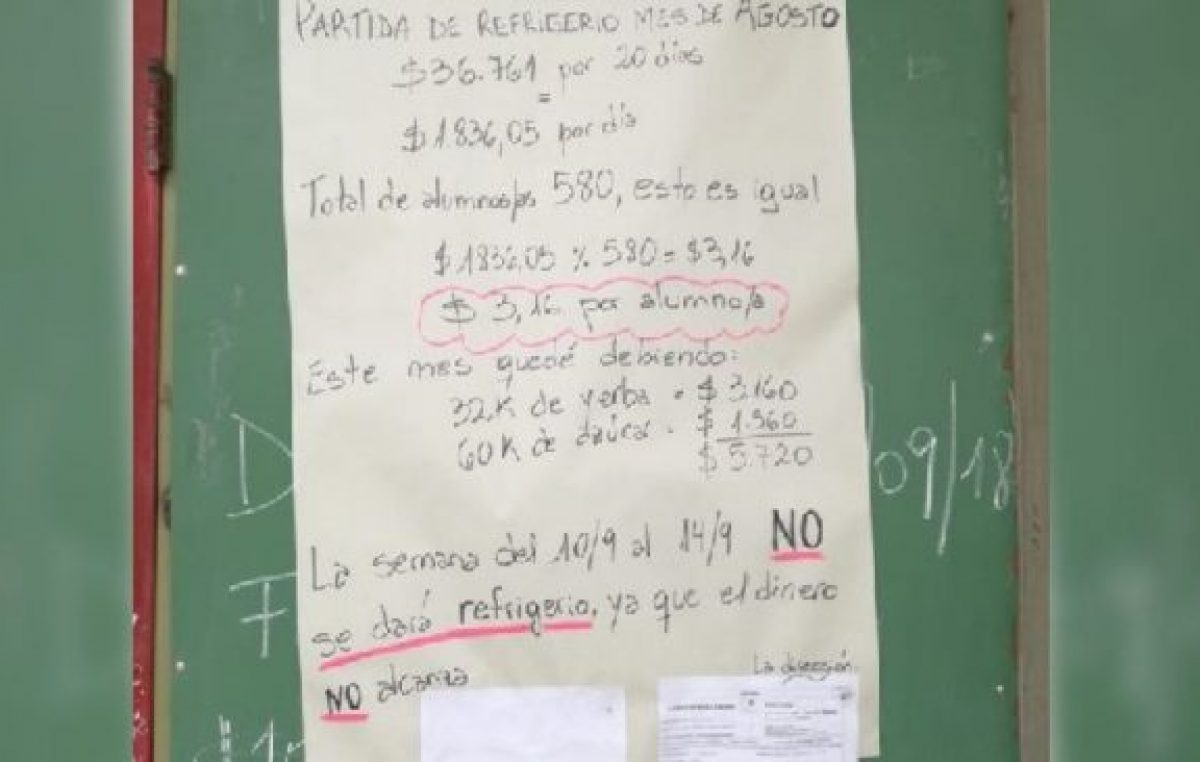 PARTIDA DE REFRIGERIO MES DE AGOSTO
$36.761 por 20 días
=
$1.836,05 por día
Total de alumnos/as 580, esto es igual
$1836,05 % 580 = $3,16
$ 3,16 por alumno/a
Este mes quedé debiendo:
32K de yerba = $ 3.160
60K de azúcar = $ 1.560
$ 5.720
La semana del 10/9 al 14/9 NO
se dará refrigerio, ya que el dinero
NO alcanza
La dirección
D
/09/18
F